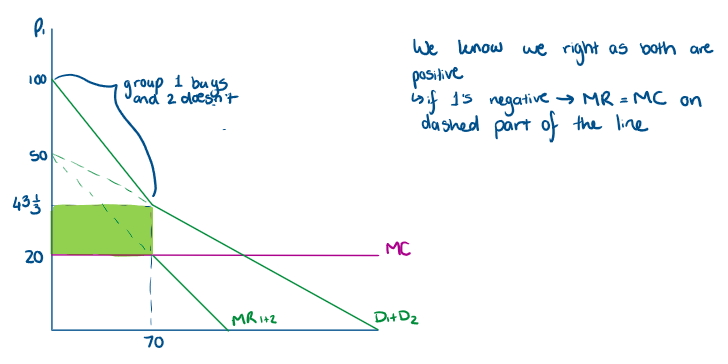 P₁
100
group 1 buys
and 2 doesn't
50
43 1/3
20
70
MC
MR₁₊₂
D₁+D₂
We know we right as both are
positive
↳if 1's negative → MR = MC on
dashed part of the line